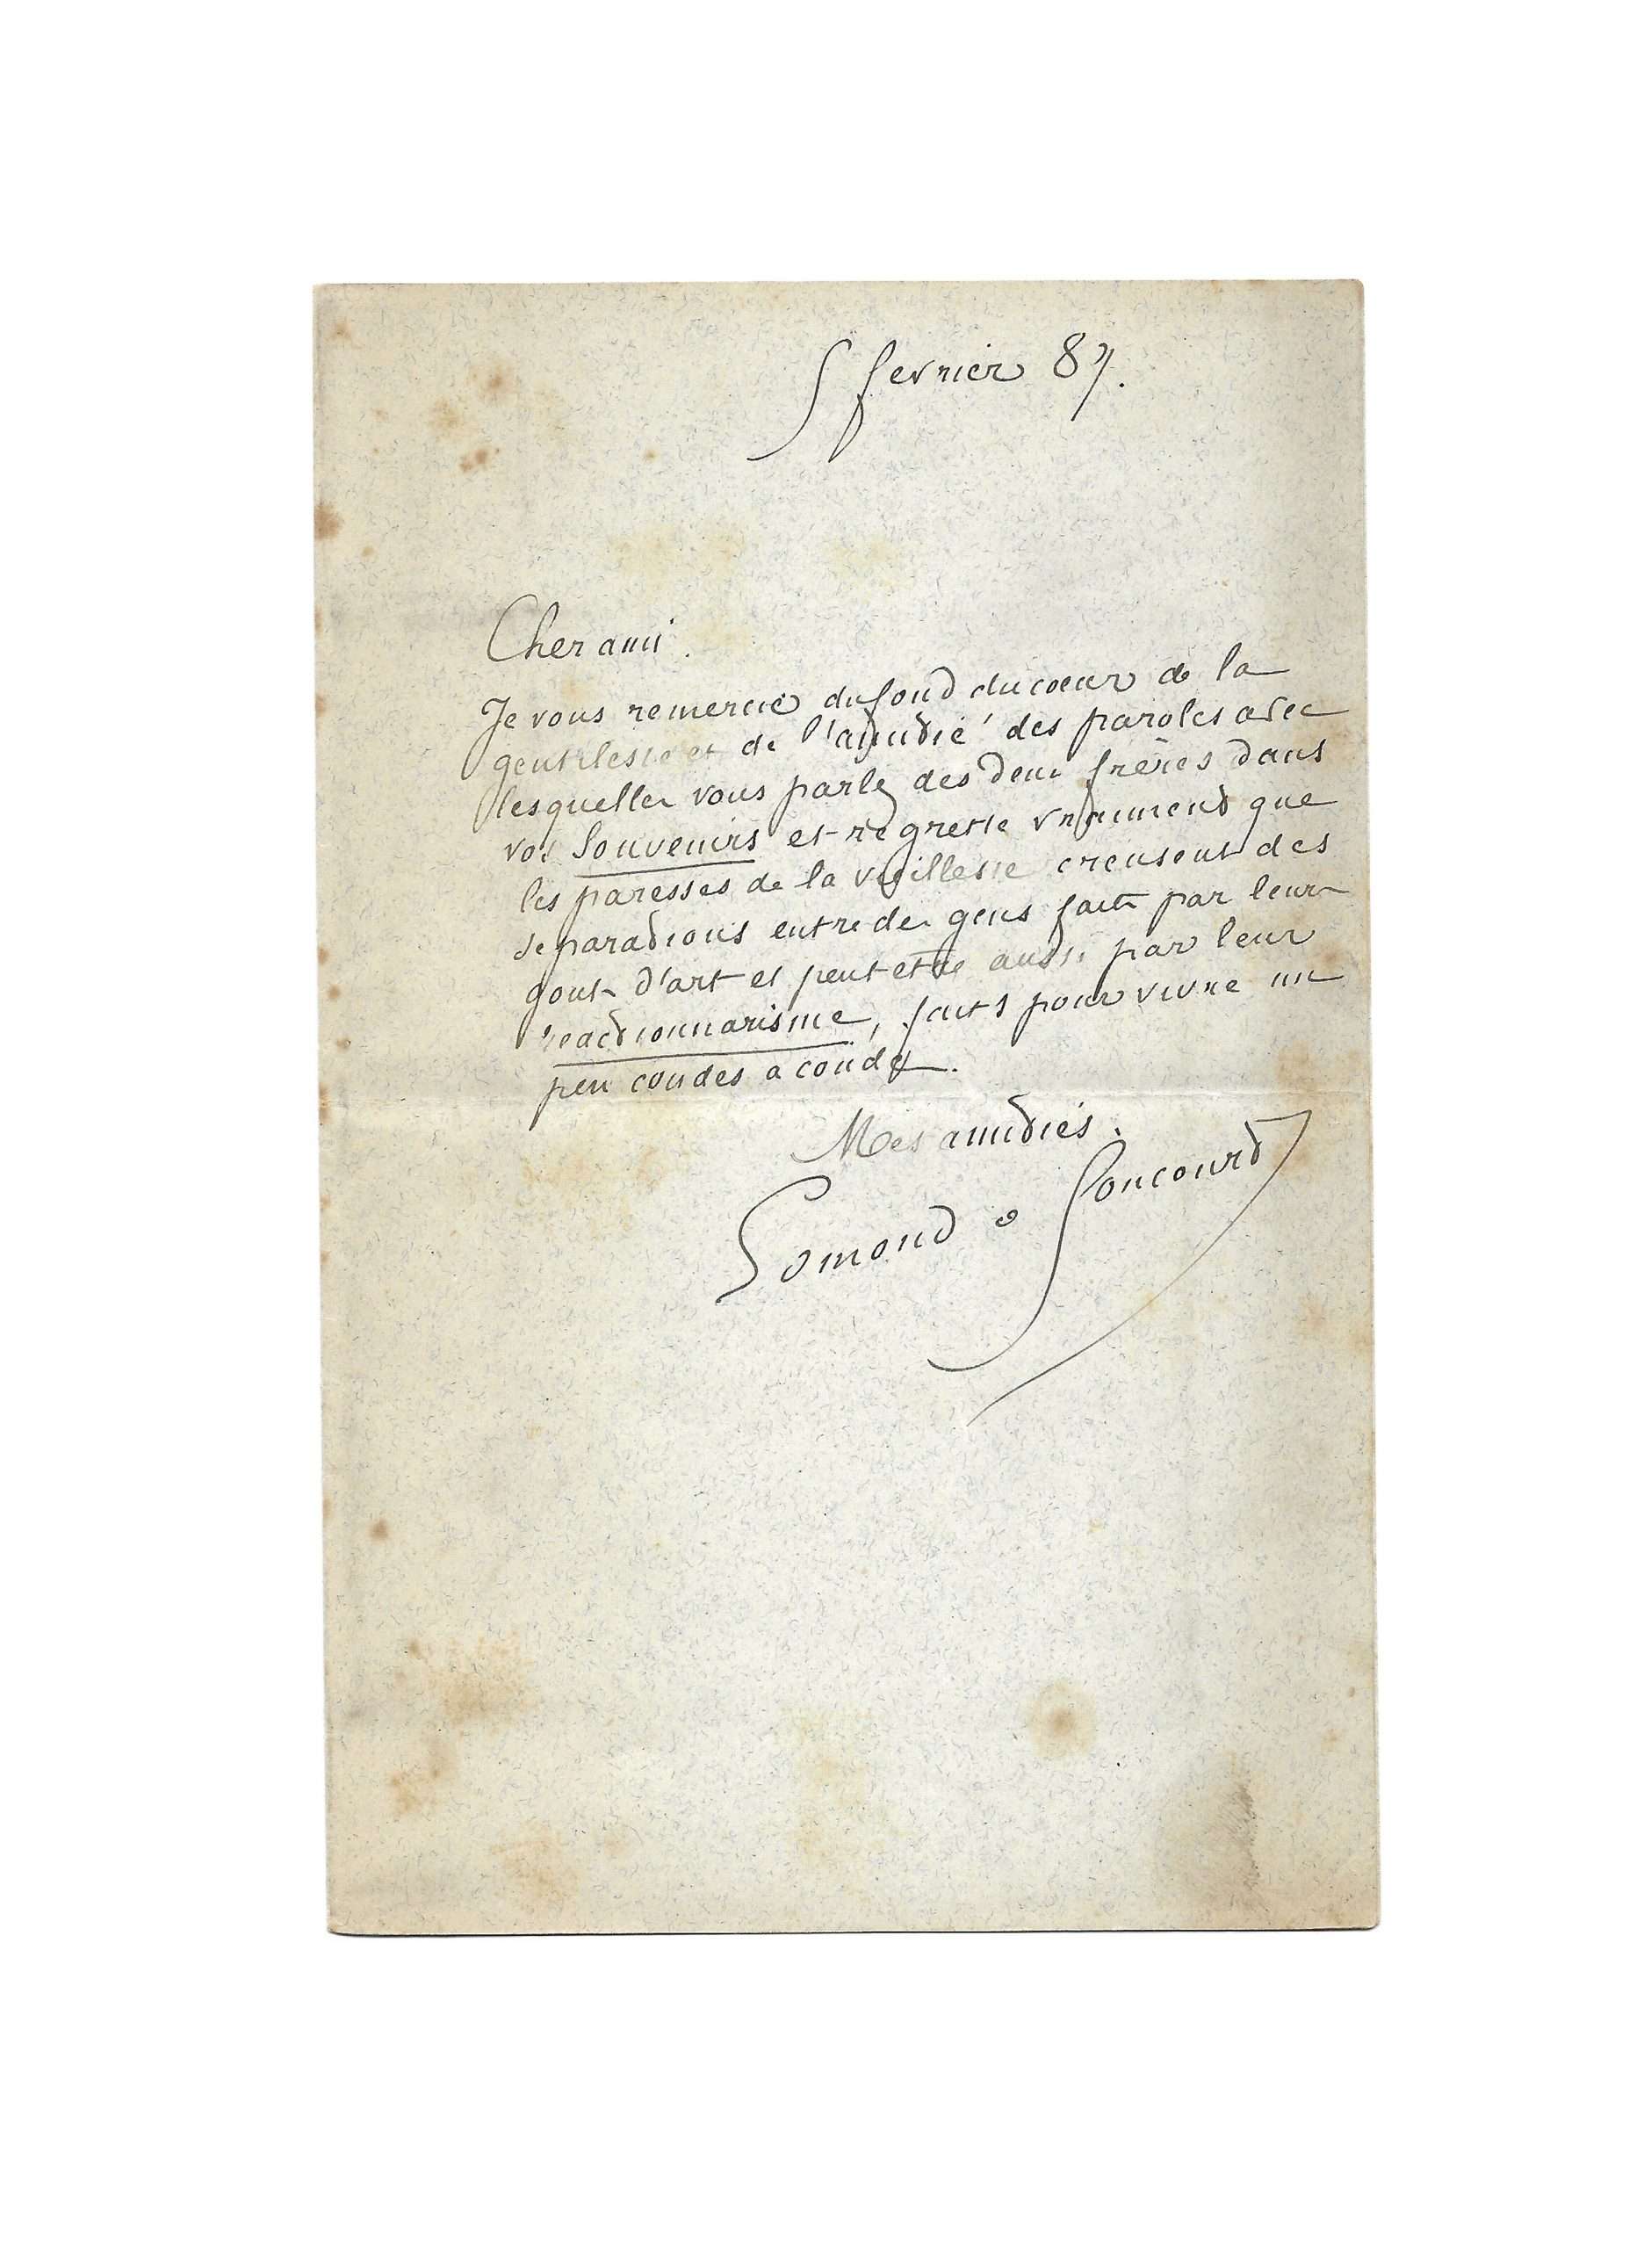 5 fevrier 87.
Cher ami.
Je vous remercie du fond du coeur de la
gentilesse et de l'amitié des paroles avec
lesquelles vous parlez des deux frères dans
vos Souvenirs et regrette vraiment que
les paresses de la vieillesse creusent des
separations entre des gens faits par leurs
gouts d'art et peut etre aussi par leur
reactionnarisme, faits pour vivre un
peu coudes a coudes.
Mes amitiés.
Edmond de Goncourt